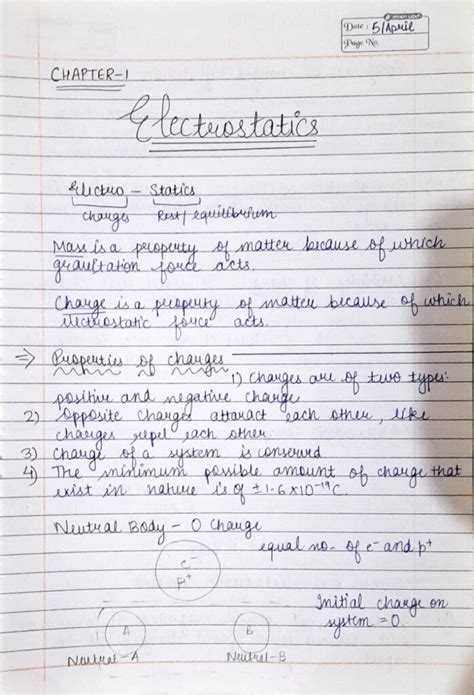 Date: 5/April
Page No.
CHAPTER-1
Electrostatics
Electro - Statics
charges Rest/equilibrium
Mass is a property of matter because of which
gravitation force acts.
Charge is a property of matter because of which
electrostatic force acts.
⇒ Properties of charges
1) Charges are of two types:
positive and negative charge
2) Opposite charges attaract each other, like
charges repel each other.
3) Charge of a system is conserved
4) The minimum possible amount of charge that
exist in nature is of ±1.6×10⁻¹⁹C.
Neutral Body - 0 Charge
equal no. of e⁻ and p⁺
e⁻
p⁺
Initial charge on
system = 0.
A B
Neutral-A Neutral-B